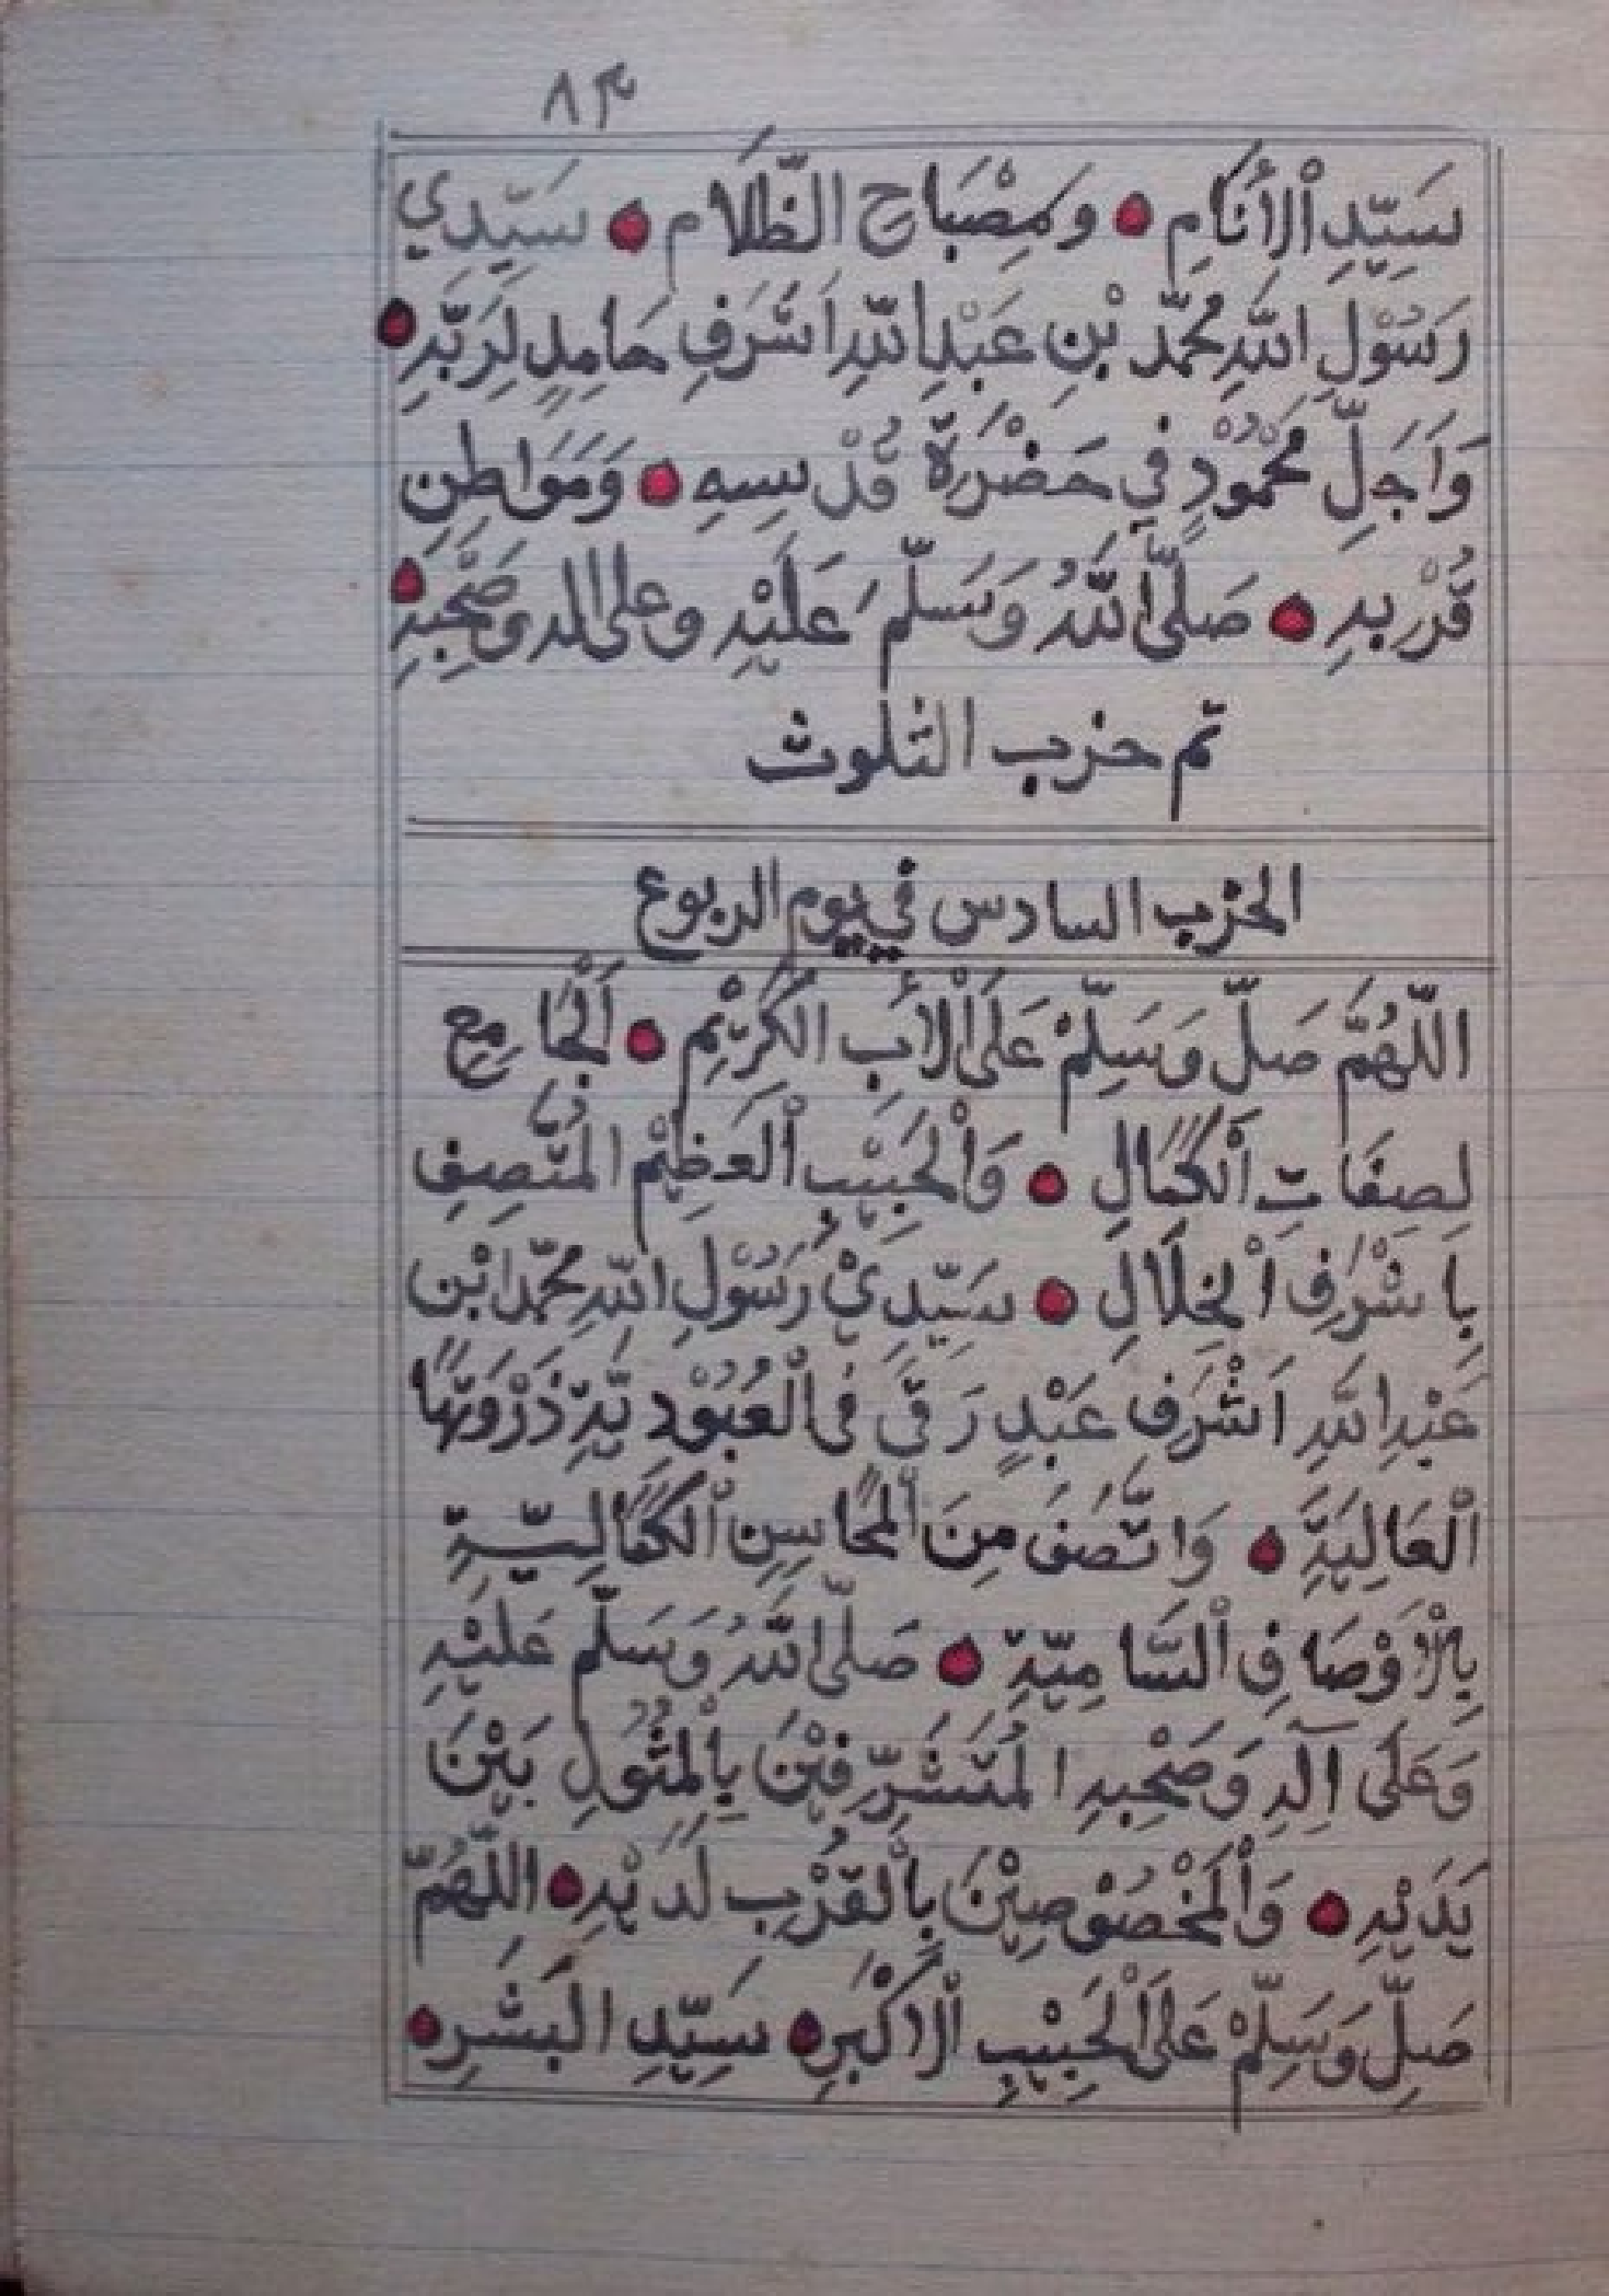 ٨٣
سَيِّدِ الْأَنَامِ ● وَمِصْبَاحِ الظَّلَامِ ● سَيِّدِي
رَسُوْلِ اللّٰهِ مُحَمَّد بْنِ عَبْدِ اللّٰهِ اَشْرَفِ حَامِدٍ لِرَبِّهِ ●
وَاَجَلِّ مَحْمُوْدٍ فِي حَضْرَةِ قُدْسِهِ ● وَمَوَاطِنِ
قُرْبِهِ ● صَلَّى اللّٰهُ وَسَلَّمَ عَلَيْهِ وعلى اله وصَحْبِهِ ●
تم حزب الثلوث
الحزب السادس في يوم الربوع
اللّٰهُمَّ صَلِّ وَسَلِّمْ عَلَى الْأَبِ الْكَرِيْمِ ● اَلْجَامِعِ
لِصِفَاتِ الْكَمَالِ ● وَالْحَبِيْبِ الْعَظِيْمِ الْمُتَّصِفِ
بِاَشْرَفِ الْخِلَالِ ● سَيِّدِيْ رَسُوْلِ اللّٰهِ مُحَمَّد ابْنِ
عَبْدِ اللّٰهِ اَشْرَفِ عَبْدٍ رَقَى فِى الْعُبُوْدِيَّةِ ذَرْوَتَهَا
الْعَالِيَةَ ● وَاتَّصَفَ مِنَ الْمَحَاسِنِ الْكَمَالِيَّةِ
بِالْاَوْصَافِ السَّامِيَّةِ ● صَلَّى اللّٰهُ وَسَلَّمَ عَلَيْهِ
وَعَلَى آلِهِ وَصَحْبِهِ الْمُتَشَرِّفِيْنَ بِالْمُثُوْلِ بَيْنَ
يَدَيْهِ ● وَالْمَخْصُوْصِيْنَ بِالْقُرْبِ لَدَيْهِ ● اللّٰهُمَّ
صَلِّ وَسَلِّمْ عَلَى الْحَبِيْبِ الْاَكْبَرِ ● سَيِّدِ الْبَشَرِ ●